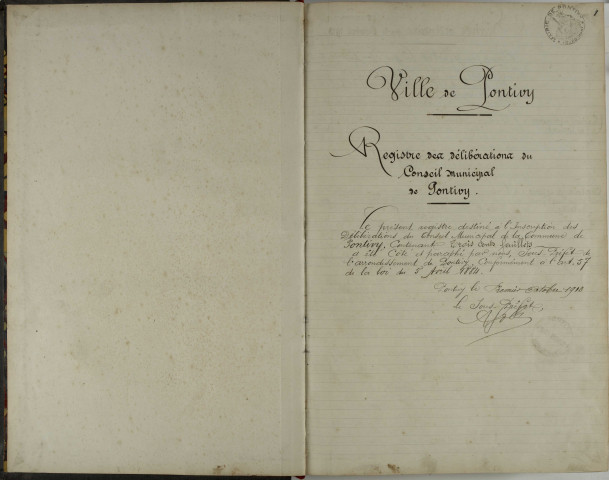 1
Ville de Pontivy
Registre des délibérations du
Conseil Municipal
de Pontivy.
Le présent registre destiné a l'Inscription des
Délibérations du Conseil Municipal de la Commune de
Pontivy, Contenant Trois Cents feuillets
a été Coté et paraphé par nous, Sous-Préfet de
l'arrondissement de Pontivy, Conformément a l'art. 57
de la loi du 5 Avril 1884.
Pontivy le Premier Octobre
Le Sous-Préfet,